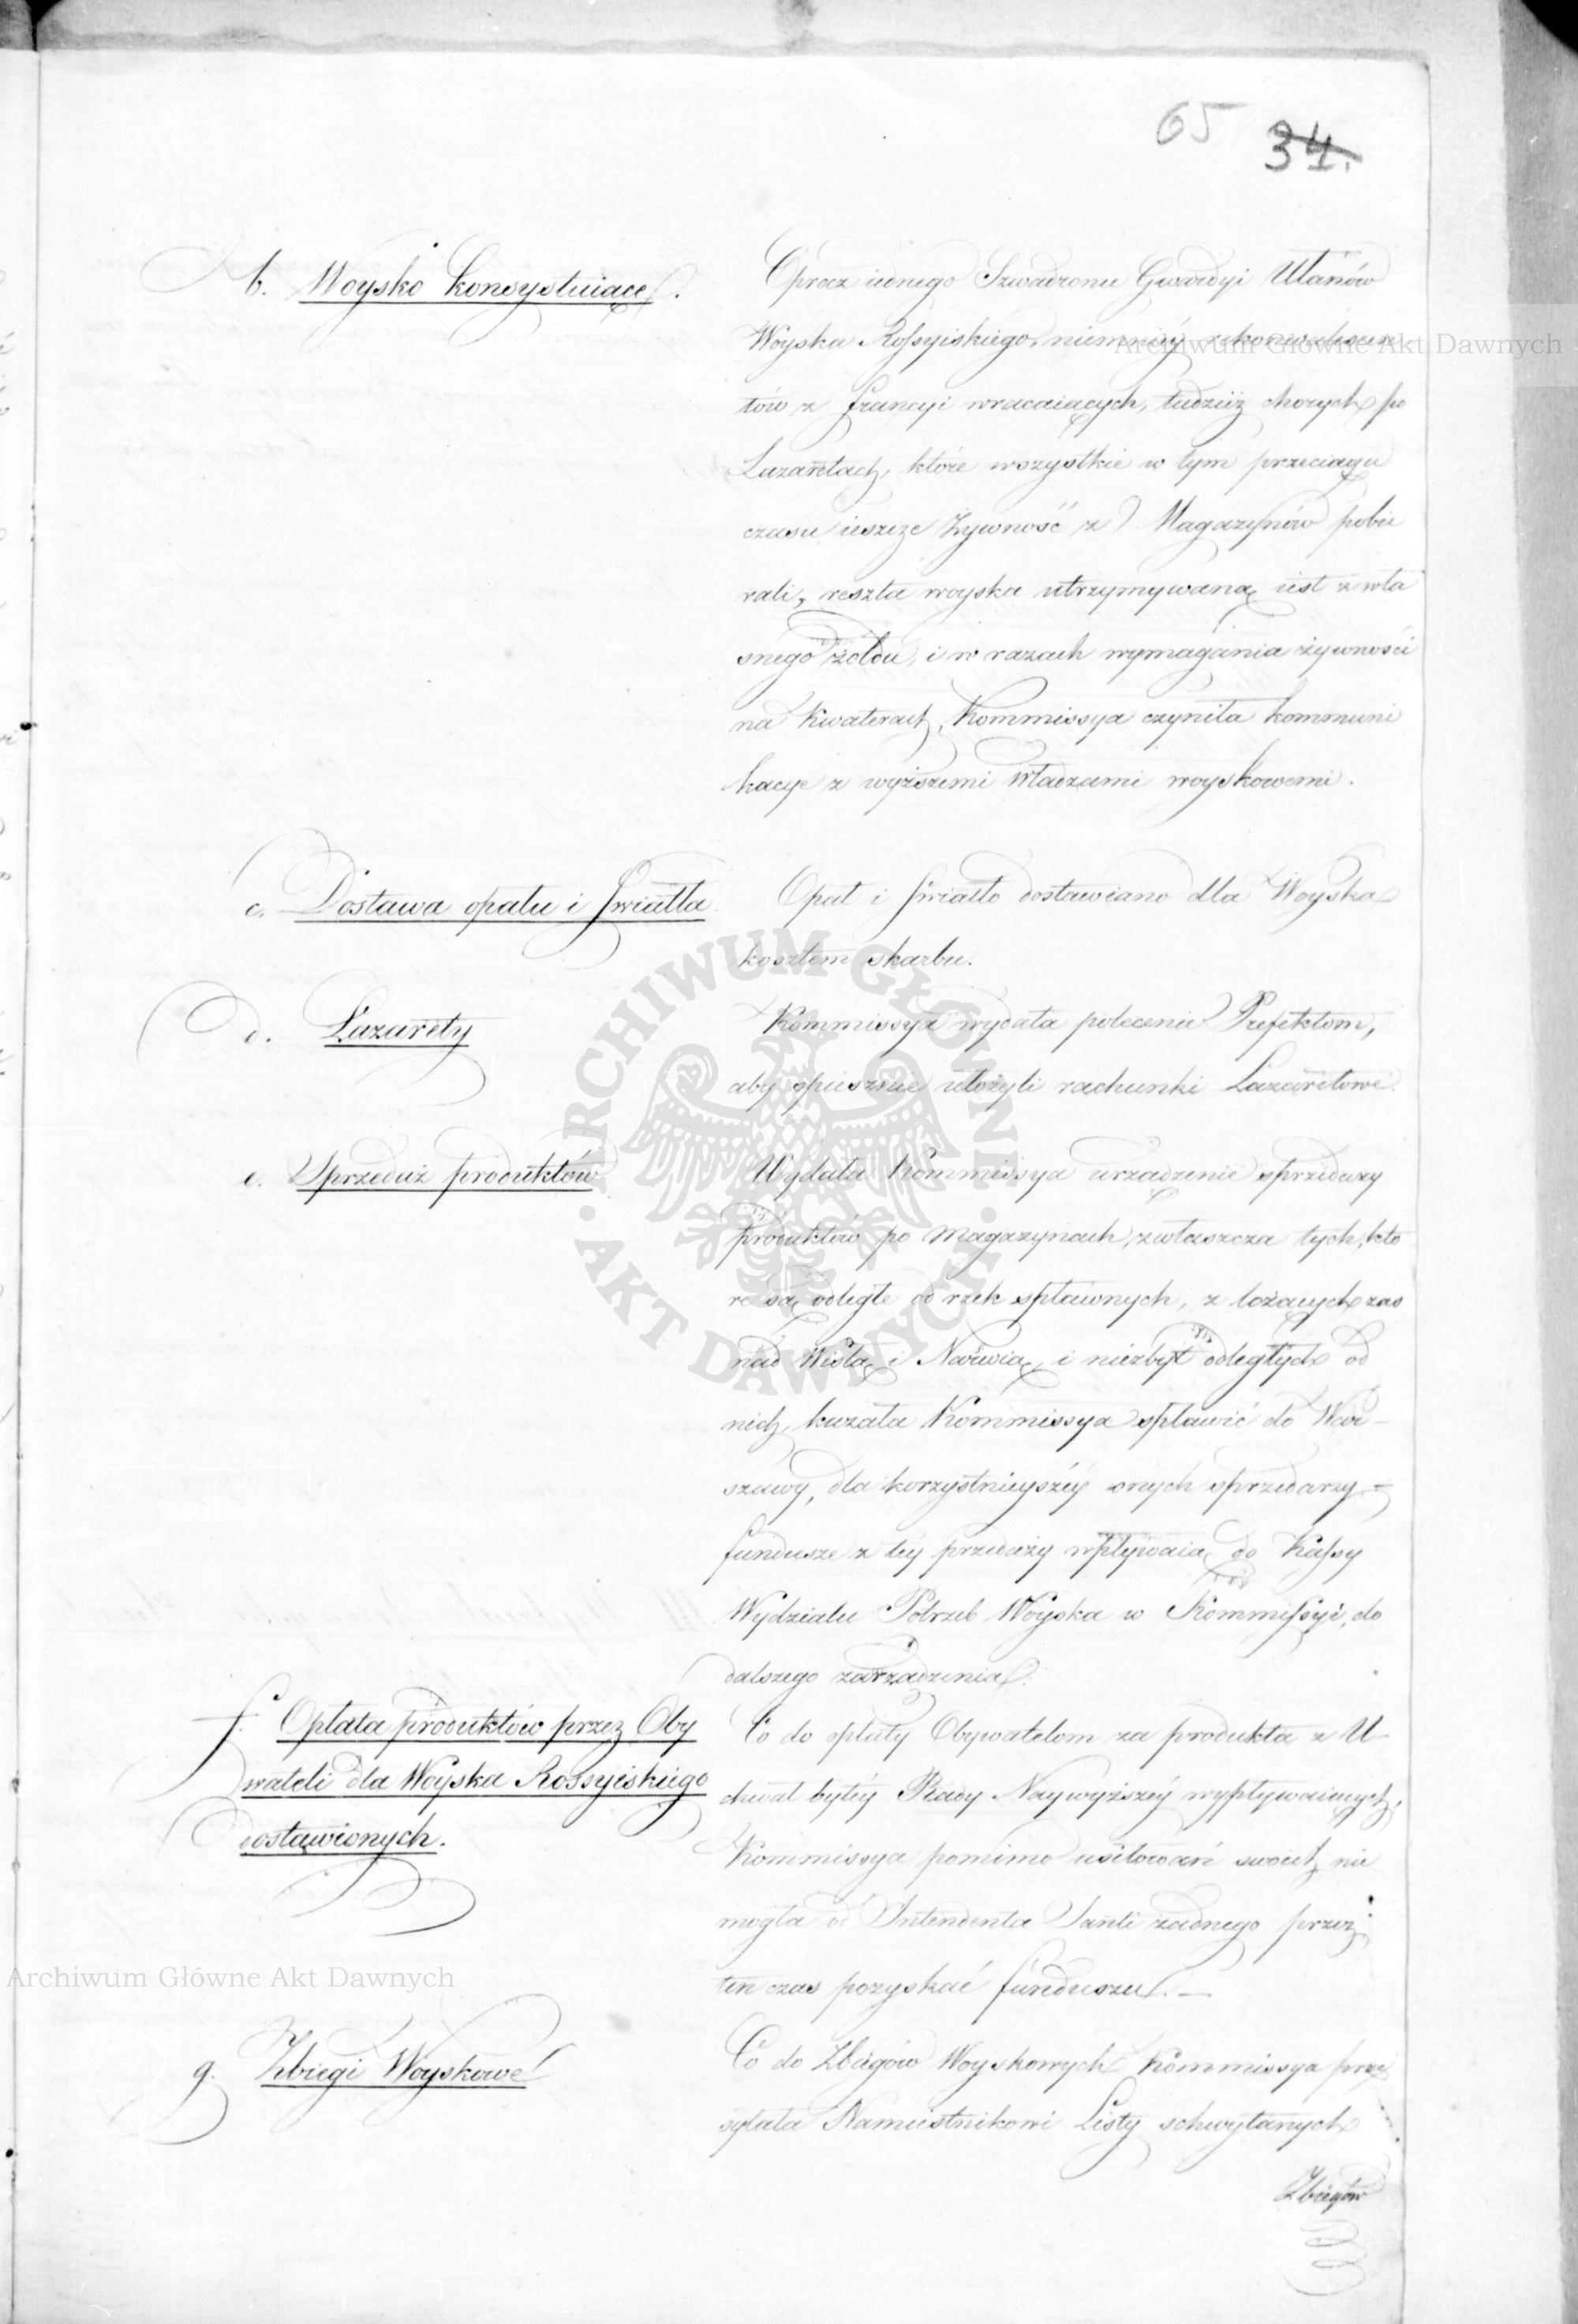 65 34.
b. Woysko konsystuiące.
Oprocz iednego Szwadronu Gwardyi Ułanów
Woyska Rossyiskiego, niemniéy rekonwalescen
tów z Francyi wracaiących, tudzież chorych po
Lazaretach, które wszystkie w tym przeciągu
czasu ieszcze Żywność z Magazynów pobie
rali, reszta woyska utrzymywaną iest z wła
snego żołdu, i w razach wymagania żywności
na Kwaterach, Kommissya czyniła kommuni
kacye z wyższemi Władzami woyskowemi.
c. Dostawa opału i Swiatła.
Opał i Swiatło dostawiano dla Woyska
kosztem skarbu.
d. Lazarety
Kommissya wydała polecenie Prefektom,
aby spiesznie ułożyli rachunki Lazaretowe.
e. Sprzedaż produktów
Wydała Kommissya urządzenie sprzedaży
produktów po Magazynach, zwłaszcza tych, któ
re są odległe od rzek spławnych, z lożących zas
nad Wisłą i Narwią, i niezbyt odległych od
nich, kazała Kommissya spławić do War-
szawy, dla korzystnieyszéy onych sprzedarzy =
fundusze z téy przedaży wpływaią do Kassy
Wydziału Potrzeb Woyska w Kommissyi, do
dalszego zarządzenia.
f. Opłata produktów przez Oby
wateli dla Woyska Rossyiskiego
dostawionych.
Co do opłaty Obywatelom za produkta z U-
chwał byłéy Rady Naywyższéy wypływaiących,
Kommissya pomimo usiłowań swoich nie
mogła od Intendenta Santi żadnego przez
ten czas pozyskać funduszu. —
g. Zbiegi Woyskowe
Co do Zbiegów Woyskowych Kommissya prze
syłała Namiestnikowi Listy schwytanych
Zbiegów
Archiwum Główne Akt Dawnych
Archiwum Główne Akt Dawnych
ARCHIWUM GŁÓWNE · AKT DAWNYCH ·